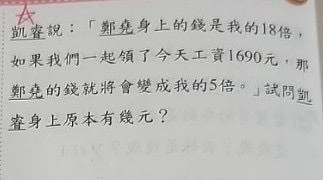 凱睿說：「鄭堯身上的錢是我的18倍，
如果我們一起領了今天工資1690元，那
鄭堯的錢就將會變成我的5倍。」試問凱
睿身上原本有幾元？